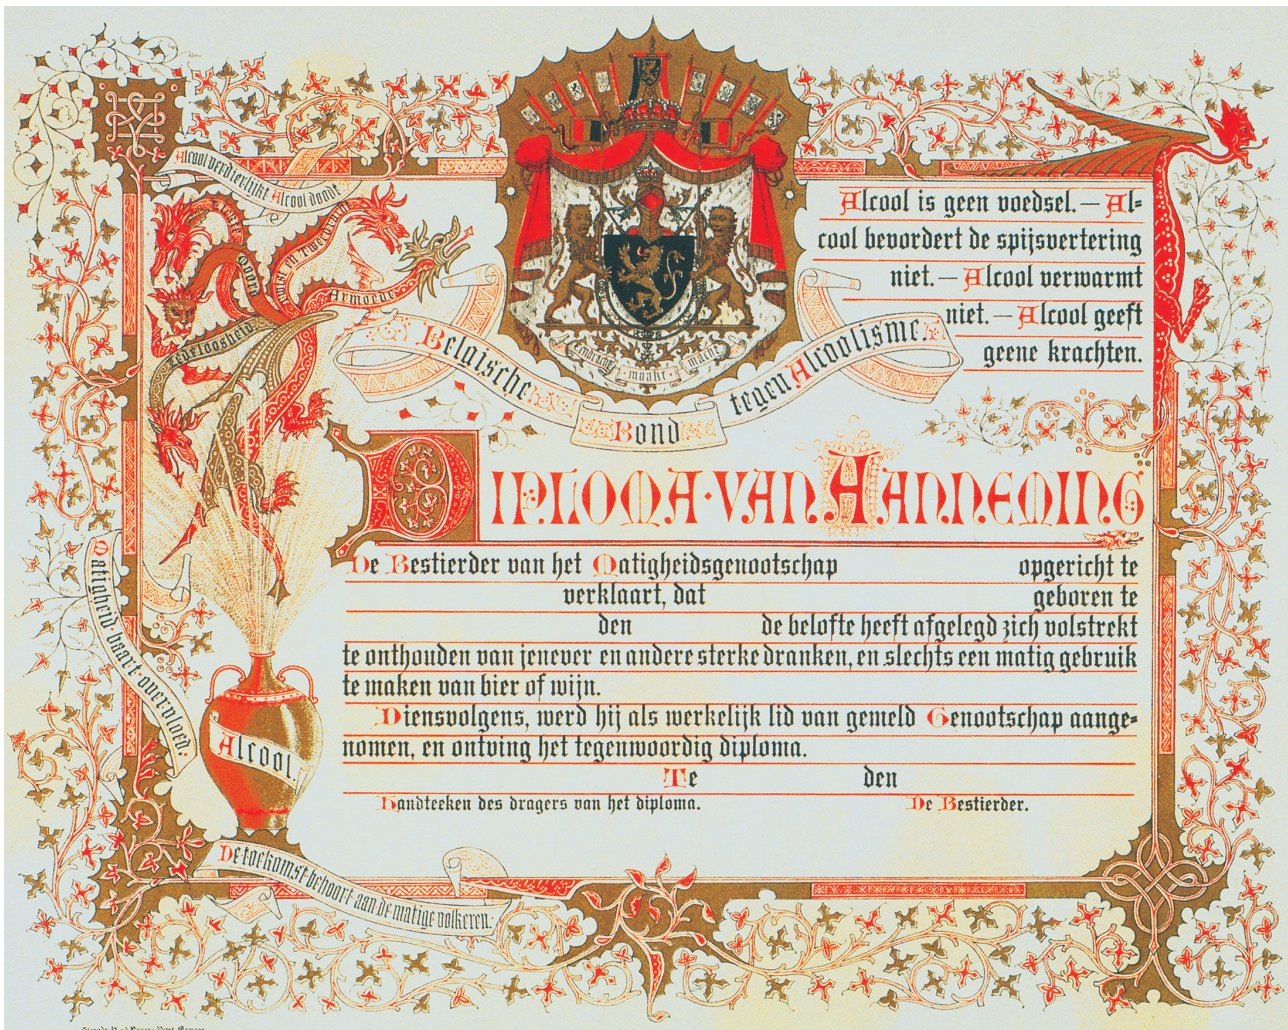 Alcool verdierlijkt Alcool doodt
Ziekte
Moord
Twist en Tweedracht
Armoede
Zedeloosheid
Eendracht maakt macht
Belgische Bond tegen Alcoolisme.
Alcool is geen voedsel. — Al-
cool bevordert de spijsvertering
niet. — Alcool verwarmt
niet. — Alcool geeft
geene krachten.
DIPLOMA · VAN AANNEMING
De Bestierder van het Matigheidsgenootschap opgericht te
verklaart, dat geboren te
den de belofte heeft afgelegd zich volstrekt
te onthouden van jenever en andere sterke dranken, en slechts een matig gebruik
te maken van bier of wijn.
Diensvolgens, werd hij als werkelijk lid van gemeld Genootschap aange-
nomen, en ontving het tegenwoordig diploma.
Te den
Handteeken des dragers van het diploma. De Bestierder.
Matigheid baart overvloed.
Alcool.
De toekomst behoort aan de matige volkeren.